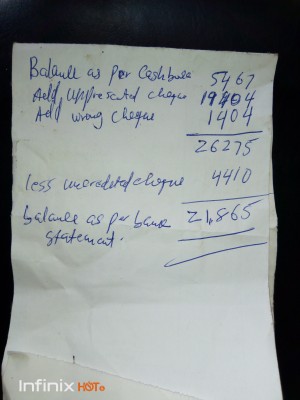 Balance as per Cashbook 5467
Add Unpresented cheque 19404
Add wrong cheque 1404
26275
less uncredited cheque 4410
balance as per bank 21,865
statement.
Infinix HOT